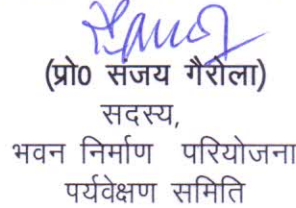 (प्रो0 संजय गैरोला)
सदस्य,
भवन निर्माण परियोजना
पर्यवेक्षण समिति